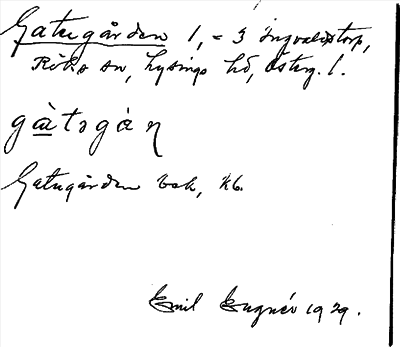 Gatugården 1, = 3 Ingvaldstorp,
Röks sn, Lysings hd, Österg. l.
gàtǝgàɳ
Gatugården bok, kb.
Emil Lugnér 1929.